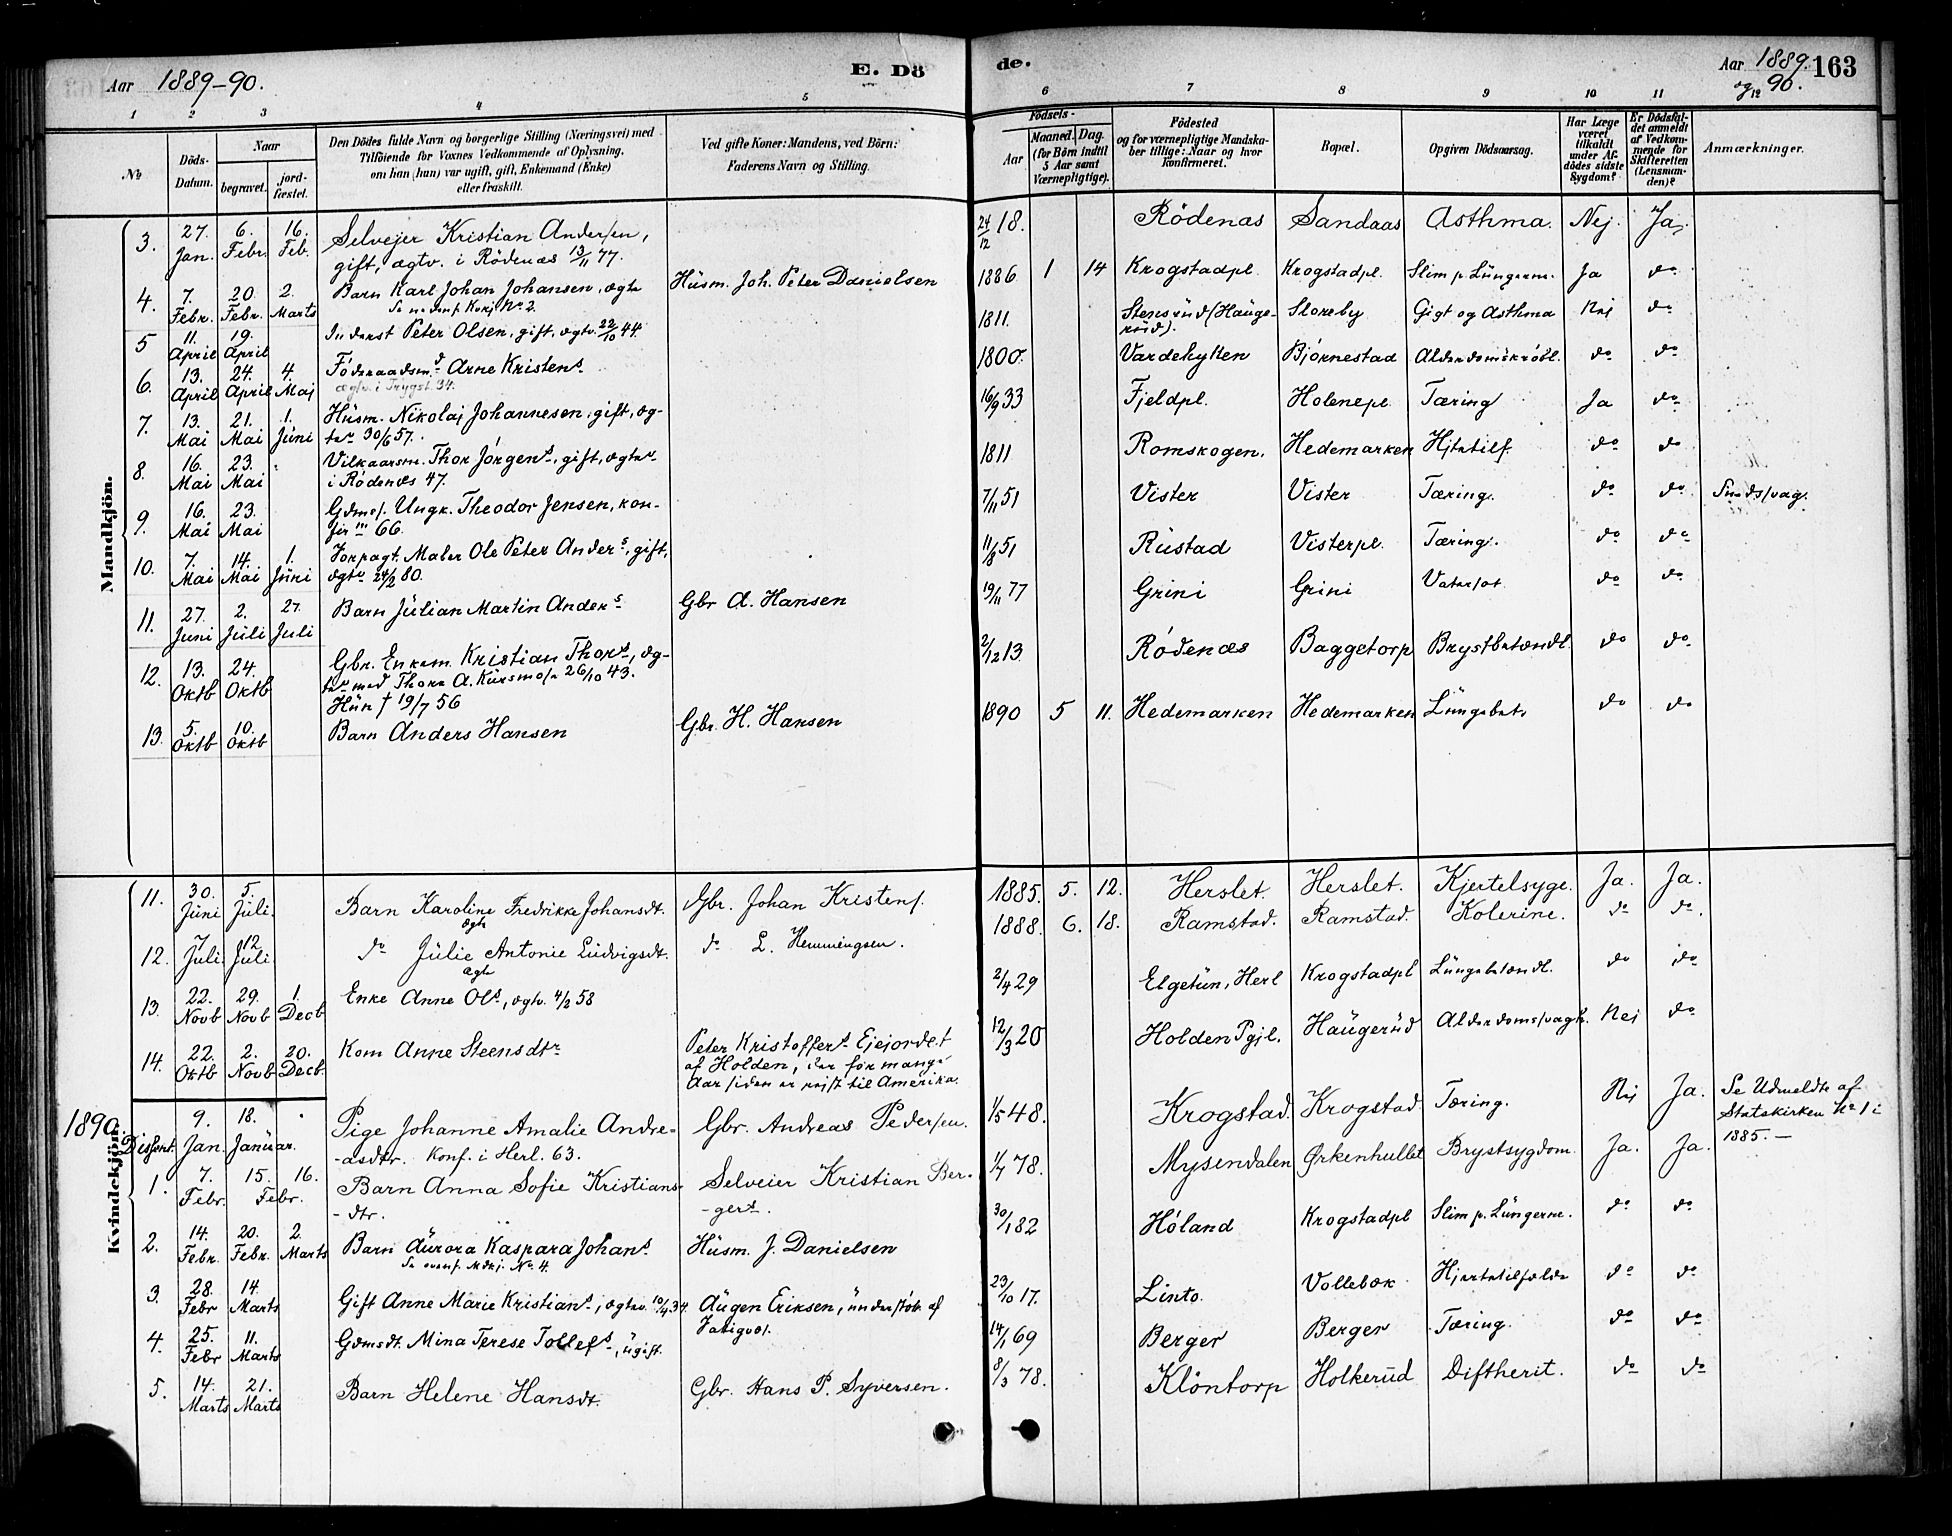 Aar 1889-90. E. Dö
de. Aar 1889. og 90. 163
1 2 3 4 5
6 7 8 9 10 11 12
No
Döds-Datum.
Naar
begravet.
jord-fæstet.
Den Dödes fulde Navn og borgerlige Stilling (Næringsvei) med
Tilföiende for Voxnes Vedkommende af Oplysning,
om han (hun) var ugift, gift, Enkemand (Enke)
eller fraskilt.
Ved gifte Koner: Mandens, ved Börn:
Faderens Navn og Stilling.
Födsels-
Aar
Maaned. Dag.
(for Börn indtil
5 Aar samt
Værnepligtige).
Födested
og for værnepligtige Mandska-
ber tillige: Naar og hvor
konfirmeret.
Bopæl.
Opgiven Dödsaarsag.
Har Læge
været
tilkaldt
under Af-
dödes sidste
Sygdom?
Er Dödsfal-
det anmeldt
af Vedkom-
mende for
Skifteretten
(Lensman-
den)?
Anmærkninger.
Mandkjön.
3. 27. Jan. 6. Febr. 16. Feb. Selvejer Kristian Andersen,
gift, ægtv. i Rödenæs 13/11 77. 24/12 18. Rödenæs Sandaas Asthma. Nej. Ja.
4. 7. Febr. 20. Febr. 2. Marts Barn Karl Johan Johansen, ægte Husm. Joh. Peter Danielsen 1886 1 14 Krogstadpl. Krogstadpl. Slim p. Lungerne. Ja do
Se nedenf. Kvkj No 2.
5 11. April 19. April Inderst Peter Olsen, gift, ægtv. 22/10 44. 1811. Stensrud (Hauge-
rud). Storeby Gigt og Asthma Nei do
6. 13. April 24. April 4. Maj Föderaadsmd Arne Kristens. 1800. Vardehytten Björnestad Alderdomskröbl. do do
ægtv. i Trygst. 34.
7. 13. Mai 21. Mai 1. Juni Husm. Nikolaj Johannesen, gift, æg-
tev 30/6 57. 16/9 33 Fjeldpl. Holenepl. Tæring Ja do
8. 16. Mai 23. Mai Vilkaarsm. Thor Jörgens., gift, ægtev
i Rödenæs 47. 1811 Romskogen. Hedemarken Hjtetilf. do do
9. 16. Mai 23. Mai Gdmss. Ungk. Theodor Jensen, kon-
fir m 66. 7/11 51 Vister Vister Tæring. do do Sindssvag.
10. 7. Mai 14. Mai 1. Juni Forpagt. Maler Ole Peter Anders., gift,
ægtv 24/2 80. 11/8 51 Rustad Visterpl. Tæring. do do
11. 27. Juni 2. Juli 27. Juli Barn Julian Martin Anders. Gbr A. Hansen 19/11 77 Grini Grini Vatersot do do
12. 13. Oktb 24. Oktb Gbr. Enkem. Kristian Thors., æg-
tev med Thora A. 26/10 43.
Hun † 19/7 56 2/12 13 Rödenæs Baggetorp Brystbetændl. do do
13. 5. Oktb 10. Oktb Barn Anders Hansen Gbr. H. Hansen 1890 5 11. Hedemarken Hedemarken Lungebet. do do
Kvindekjön.
11. 30. Juni 5. Juli. Barn Karoline Fredrikke Johansdt. Gbr. Johan Kristens. 1885. 5. 12. Herslet. Herslet. Kjertelsyge. Ja. Ja.
ægte
12. 7 Juli 12 Juli. do Julie Antonie Ludvigsdt. do L. Hemmingsen. 1888. 6. 18. Ramstad. Ramstad. Kolerine. do do.
ægte
13. 22. Novb 29. Novb 1. Decb Enke Anne Ols., ægtv. 4/2 58 2/4 29 Elgetun, Herl Krogstadpl Lungebetændl. do do
14. 22. Oktb 2. Novb 20. Decb. Kone Anne Steensdtr Peter Kristoffers. Ejejordet
af Holden, der for mange
Aar siden er rejst til Amerika. 12/3 20 Holden Pgjl. Haugerud Alderdomssvagh. Nei do
1890. Dissent. 9. Jan. 18. Januar. Pige Johanne Amalie Andre-
-asdtr. Konf. i Herl. 63. Gbr. Andreas Pedersen. 1/5 48. Krogstad. Krogstad Tæring. Nej Ja. Se Udmeldte af
Statskirken No 1 i
1885. —
1. 7. Febr. 15. 16. Febr. Barn Anna Sofie Kristians-
-dtr. Selveier Kristian Ber-
-gers. 1/7 78. Mysendalen Ørkenhullet Brystsygdom. Ja. Ja.
2. 14. Febr. 20. Febr. 2. Marts Barn Aurora Kaspara Johans. Husm. J. Danielsen 30/1 82 Höland Krogstadpl Slim p. Lungerne. do do
Se ovenf. Mdkj. No. 4.
3. 28. Febr 14. Marts Gift Anne Marie Kristians., ægtev. 10/4 34. Augen Eriksen, understöt. af
Fattigvæs. 23/10 17. Linto. Vollebæk Hjertetilfælde do do
4. 25. Febr 11. Marts Gdmsdt. Mina Terese Tollefs., ugift. 14/1 69 Berger Berger Tæring. do do
5. 14. Marts 21. Marts Barn Helene Hansdt. Gbr. Hans P. Syversen. 8/3 78. Klöntorp Holkerud Diftherit. do do